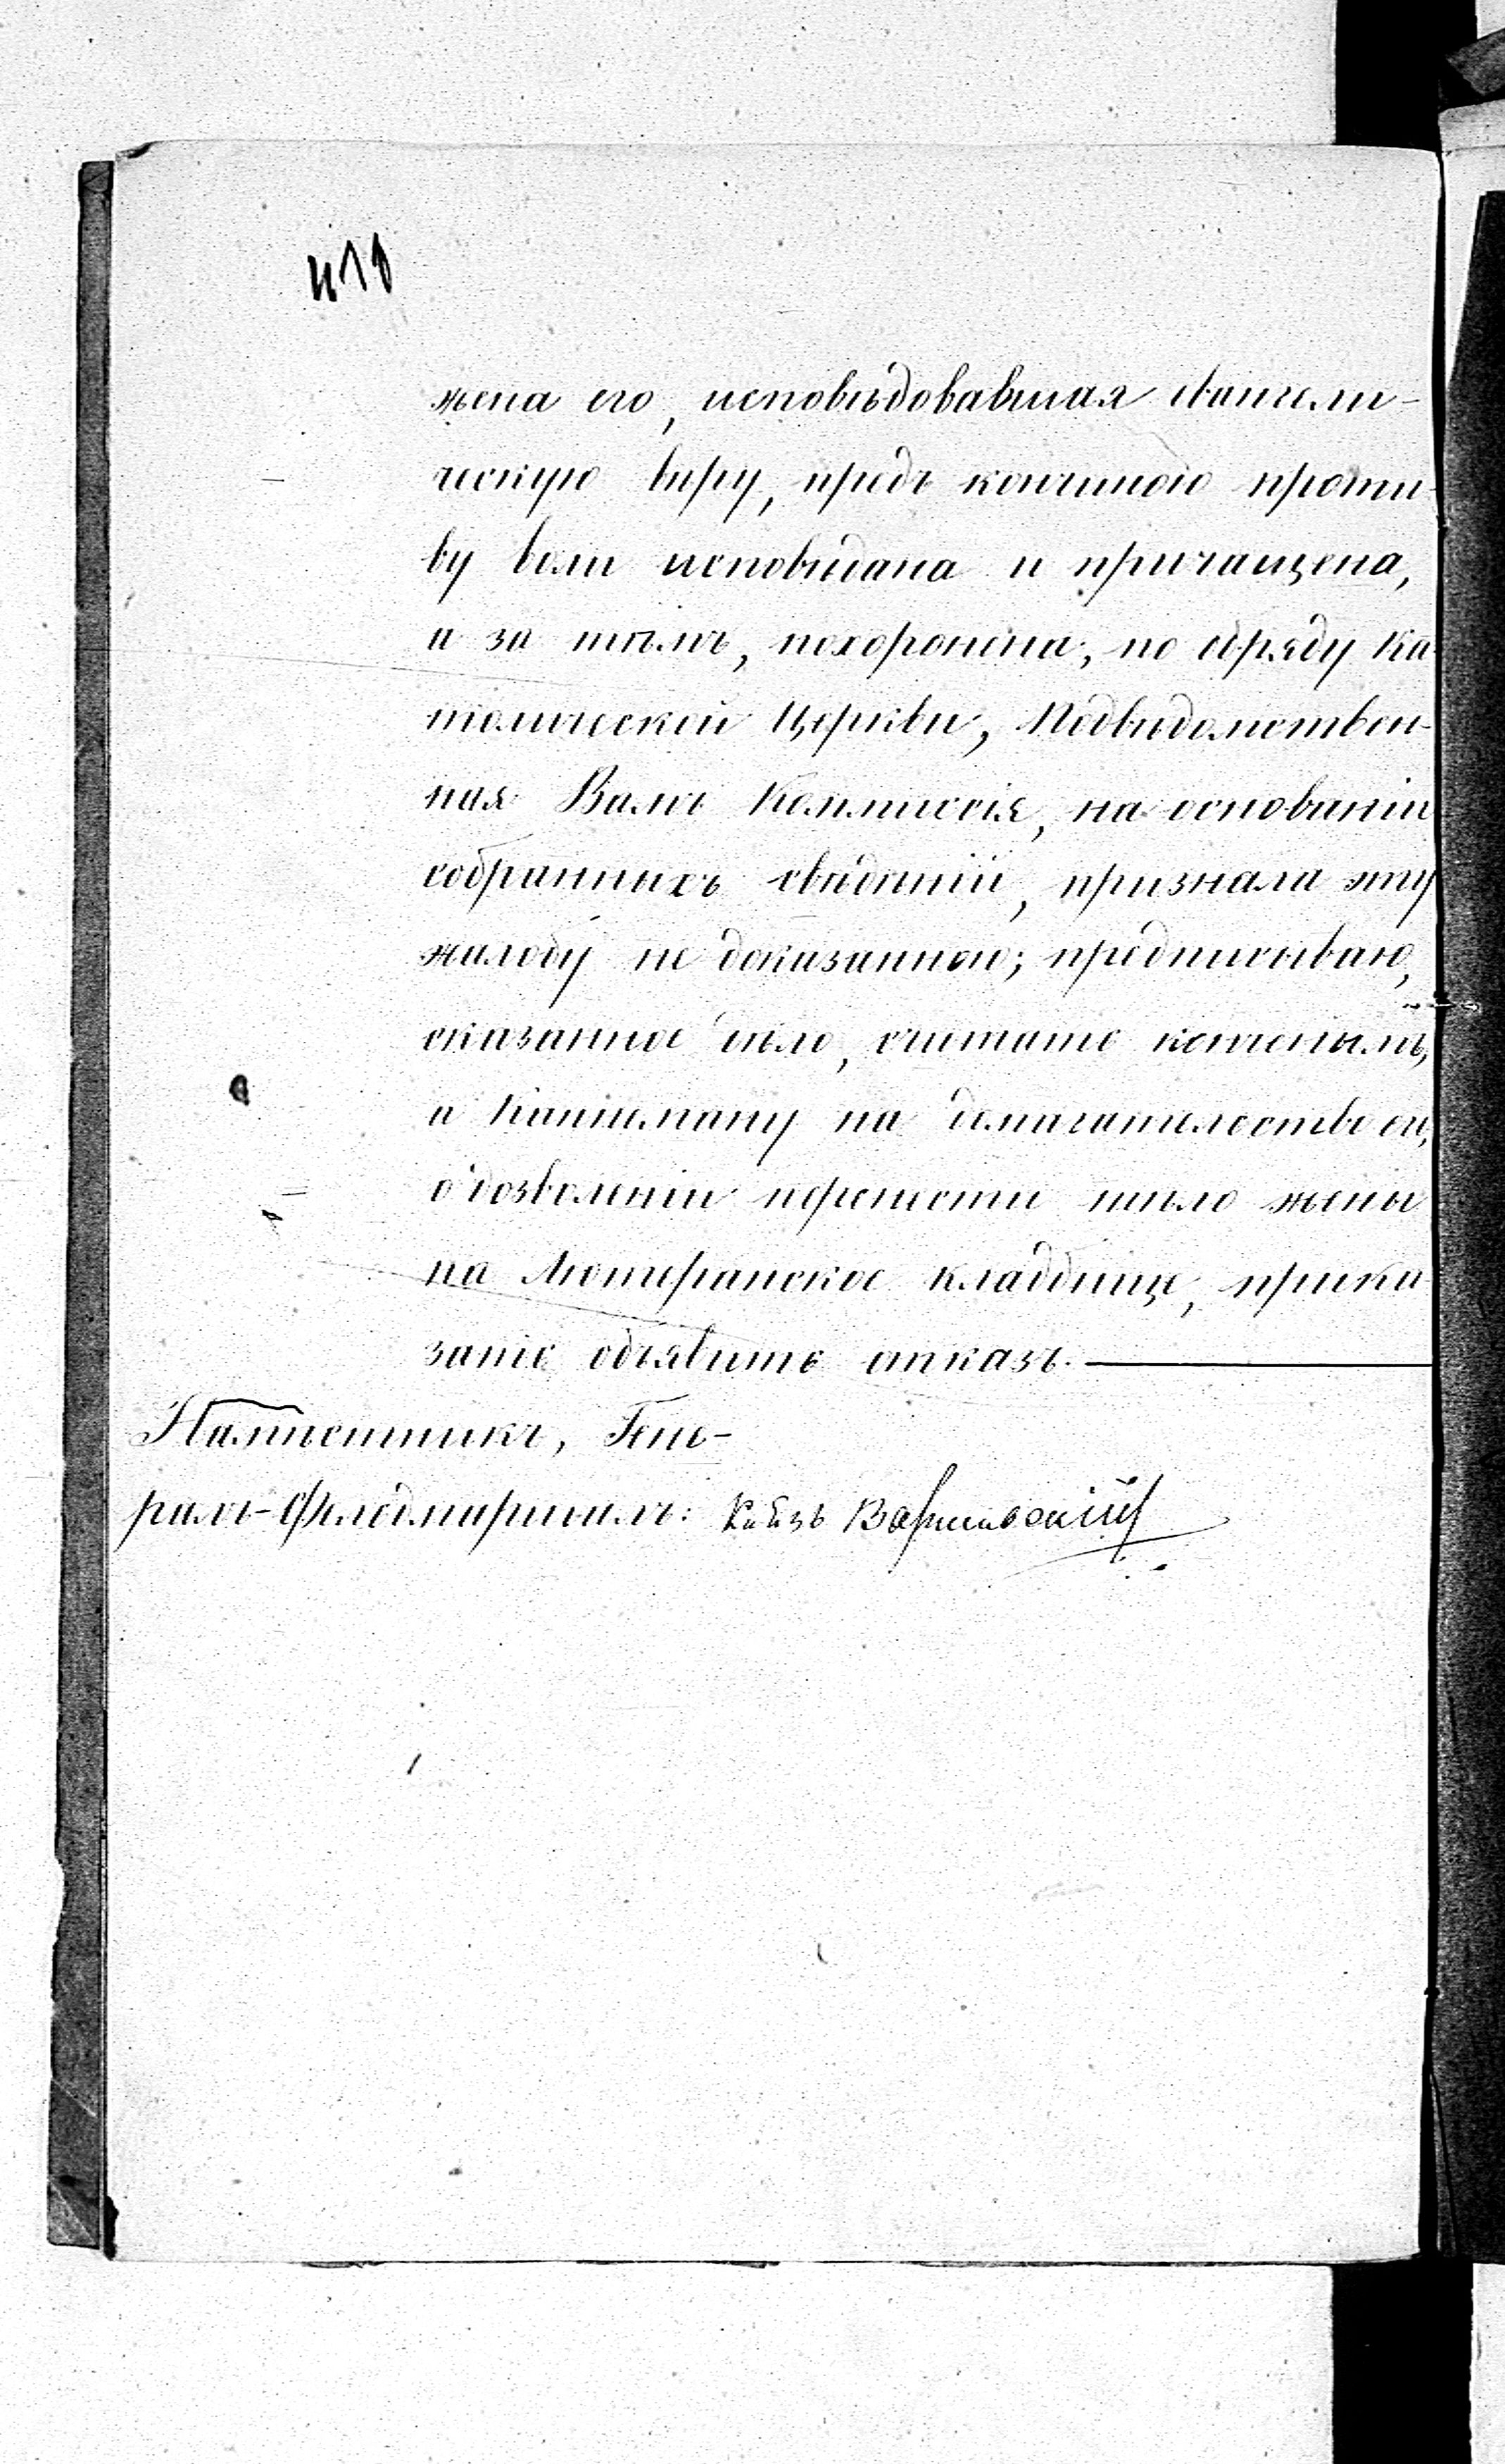 жена его, исповѣдовавшая евангели-
ческую вѣру, предъ кончиною проти-
ву воли исповѣдана и причащена,
и за тѣмъ, похоронена, по обряду Ка-
толической Церкви, Подвѣдомствен-
ная Вамъ Коммиссія, на основаніи
собранныхъ свѣдѣній, признала эту
жалобу не доказанною; предписываю,
сказанное дѣло, считать конченымъ,
а на домагательство его,
о дозволеніи перенести тѣло жены
на Лютеранское кладбище, прика-
зать объявить отказъ.
Намѣстникъ, Гене-
ралъ-Фельдмаршалъ: Князь Варшавскій